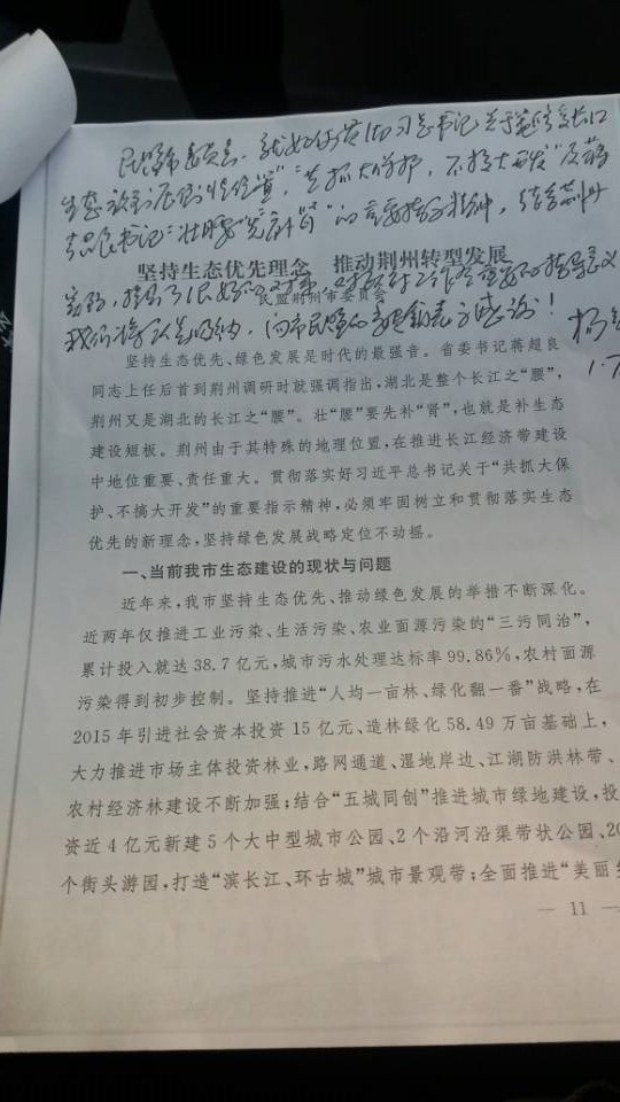 民盟市委员会，就如何贯彻习总书记关于
生态"共抓大保护，不搞大开发"及蒋
超良书记"壮腰"先"补肾"的重要指示精神，结合荆州
坚持生态优先理念 推动荆州转型发展
实际，提出了很好的对策，对我们工作有重要的指导意义
民盟荆州市委员会
我们将认真吸纳，向市民盟的贡献表示感谢！
坚持生态优先、绿色发展是时代的最强音。省委书记蒋超良
同志上任后首到荆州调研时就强调指出，湖北是整个长江之“腰”，
荆州又是湖北的长江之“腰”。壮“腰”要先补“肾”，也就是补生态
建设短板。荆州由于其特殊的地理位置，在推进长江经济带建设
中地位重要、责任重大。贯彻落实好习近平总书记关于“共抓大保
护、不搞大开发”的重要指示精神，必须牢固树立和贯彻落实生态
优先的新理念，坚持绿色发展战略定位不动摇。
一、当前我市生态建设的现状与问题
近年来，我市坚持生态优先、推动绿色发展的举措不断深化。
近两年仅推进工业污染、生活污染、农业面源污染的“三污同治”，
累计投入就达 38.7 亿元，城市污水处理达标率 99.86%，农村面源
污染得到初步控制。坚持推进“人均一亩林、绿化翻一番”战略，在
2015 年引进社会资本投资 15 亿元、造林绿化 58.49 万亩基础上，
大力推进市场主体投资林业，路网通道、湿地岸边、江湖防洪林带、
农村经济林建设不断加强；结合“五城同创”推进城市绿地建设，投
资近 4 亿元新建 5 个大中型城市公园、2 个沿河沿渠带状公园、20
个街头游园，打造“滨长江、环古城”城市景观带；全面推进“美丽
— 11 —